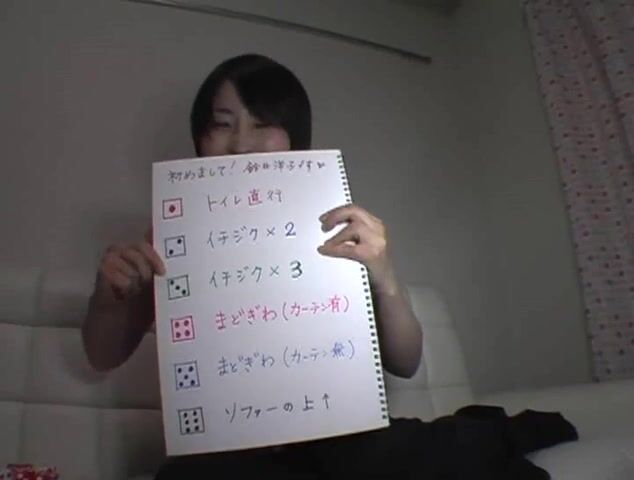 初めまして! 鈴井洋子です
トイレ直行
イチジク×2
イチジク×3
まどぎわ(カーテン有)
まどぎわ(カーテン無)
ソファーの上↑